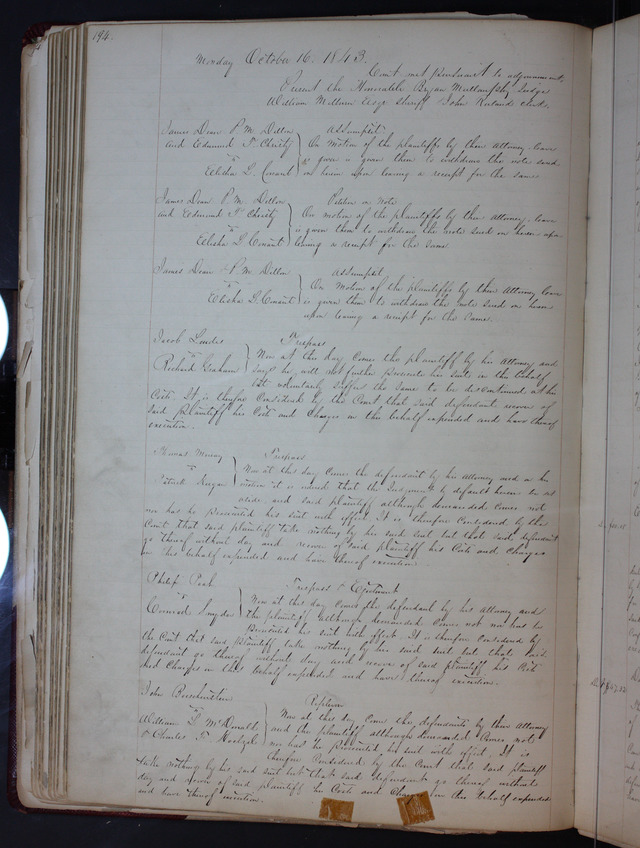 194.
Monday October 16. 1843.
Court met pursuant to adjournment,
Present the Honorable Bryan Mullanphy Judge
William Milburn Esqr Sheriff John Ruland Clerk.
James Dean P. M. Dillon assumpsit
and Edmund T. Christy On Motion of the plaintiffs by their Attorney, leave
vs is given them to withdraw the note sued
Elisha L. Conant on herein upon leaving a receipt for the same
James Dean P. M. Dillon Petition on Note
and Edmond T. Christy On motion of the plaintiffs by their Attorney, leave
vs is given them to withdraw the note sued on herein upon
Elisha L Conant leaving a receipt for the same
James Dean & P. M. Dillon assumpsit
vs On Motion of the plaintiffs by their Attorney leave
Elisha L. Conant is given them to withdraw the note sued on herein
upon leaving a receipt for the same.
Jacob Trespass
vs Now at this day comes the plaintiff by his Attorney and
Richard Graham says he will not further prosecute his suit in this behalf
but voluntarily suffers the same to be discontinued at his
Costs. It is therefore Considered by the Court that said defendant recover of
said plaintiff his Costs and Charges in this behalf expended and have thereof
execution.
Thomas Trespass
vs Now at this day comes the defendant by his Attorney and on his
Patrick motion it is ordered that the Judgment by default herein be set
aside, and said plaintiff although demanded comes not
nor has he prosecuted his suit with effect. It is therefore Considered by the
Court that said plaintiff take nothing by his said suit but that said defendant
go thereof without day and recover of said plaintiff his Costs and Charges
in this behalf expended and have thereof execution.
Philip Trespass & Ejectment
vs Now at this day comes the defendant by his Attorney and
Conrad Snyder the plaintiff although demanded comes not nor has he
prosecuted his suit with effect. It is therefore Considered by
the Court that said plaintiff take nothing by his said suit but that said
defendant go thereof without day and recover of said plaintiff his Costs
and Charges in this behalf expended and have thereof execution.
John Replevin
vs Now at this day come the defendants by their Attorney
William L McDonald and the plaintiff although demanded Comes not
& Charles F. nor has he prosecuted his suit with effect. It is
therefore Considered by the Court that said plaintiff
take nothing by his said suit but that said defendants go thereof without
day and recover of said plaintiff their Costs and Charges in this behalf expended
and have thereof execution.